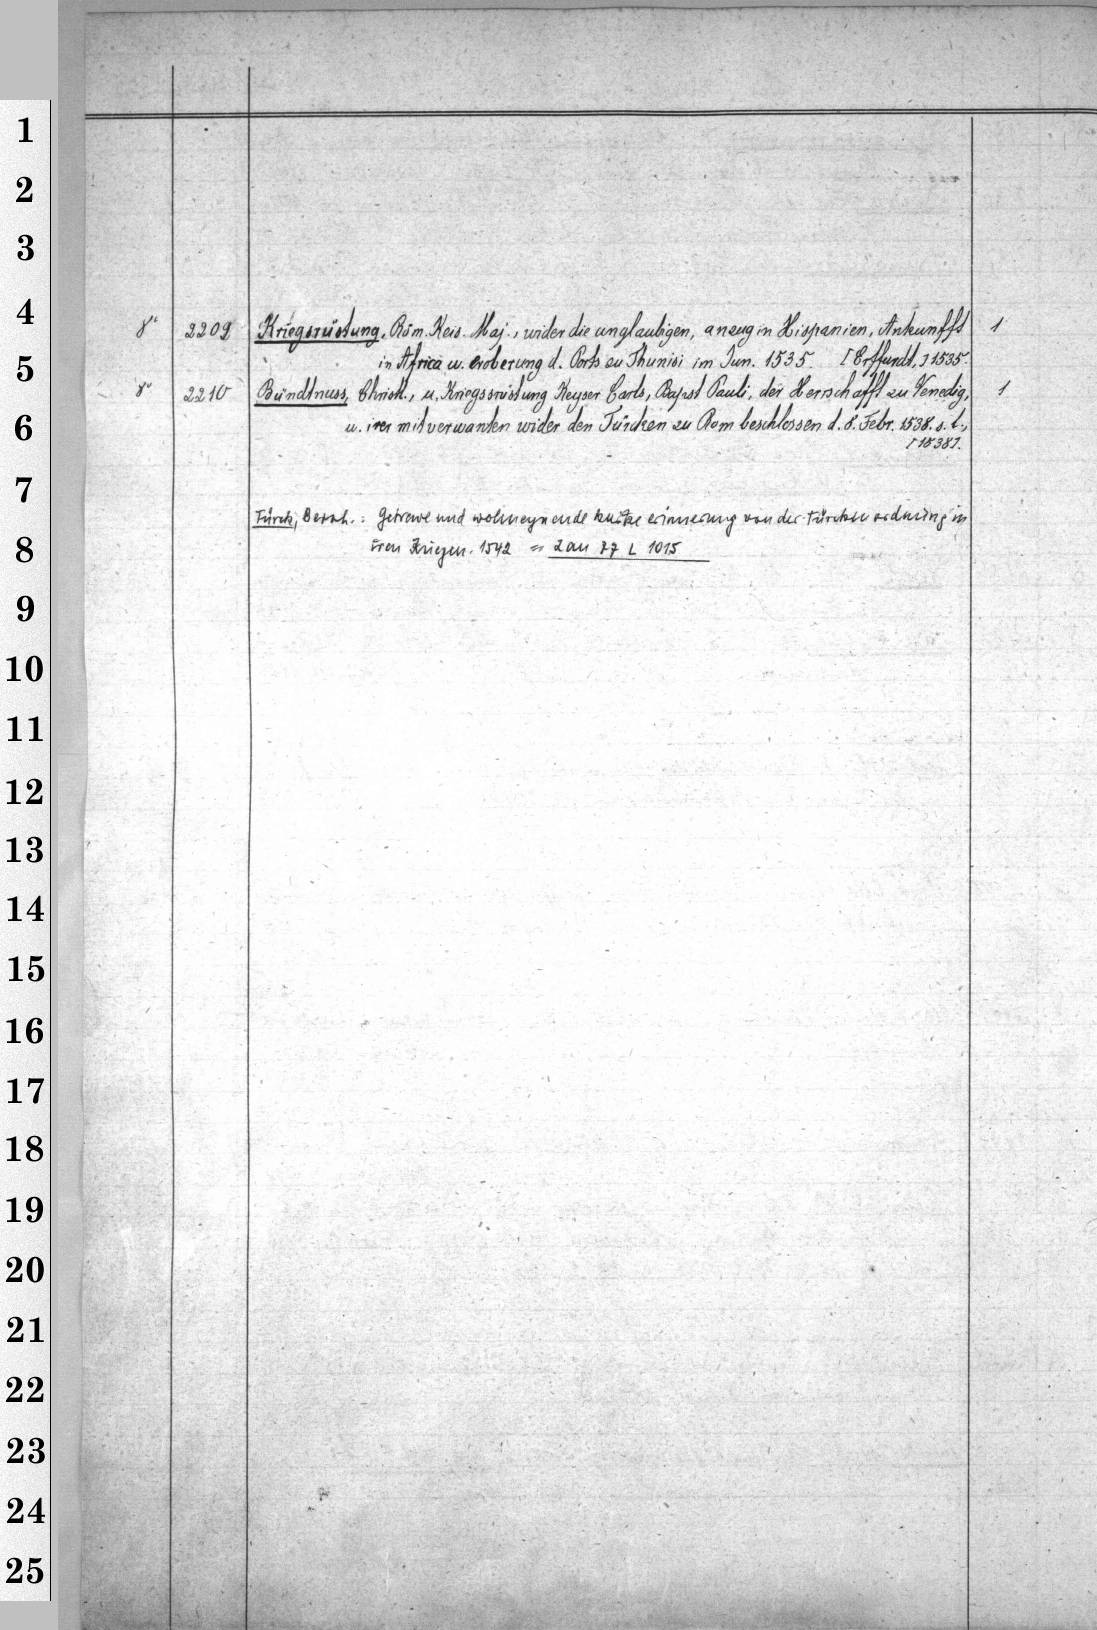 1
2
3
4
8° 2209 Kriegsrüstung, Röm. Keis. Maj., wider die unglaubigen, anzug in Hispanien, Ankunfft 1
5
in Africa u. eroberung d. Ports zu Thunisi im Jun. 1535. [Erffurdt,] 1535.
8° 2210 Bündtnuss, Christl., u. Kriegssrüstung Keyser Carls, Bapst Pauli, der Herrschafft zu Venedig, 1
6
u. irer mitverwanten wider den Türcken zu Rom beschlossen d. 8. Febr. 1538. s. l.,
[1538].
7
Türck, Bernh.: Getrewe und wolmeynende kurtze erinnerung von der Türcken ordnung in
8
iren Kriegen. 1542 = 2 an 77 L 1015
9
10
11
12
13
14
15
16
17
18
19
20
21
22
23
24
25